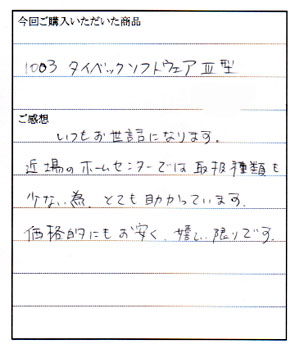 今回ご購入いただいた商品
1003 タイベックソフトウェアⅢ型
ご感想
いつもお世話になります。
近場のホームセンターでは取扱種類も
少ない為、とても助かっています。
価格的にもお安く、嬉しい限りです。